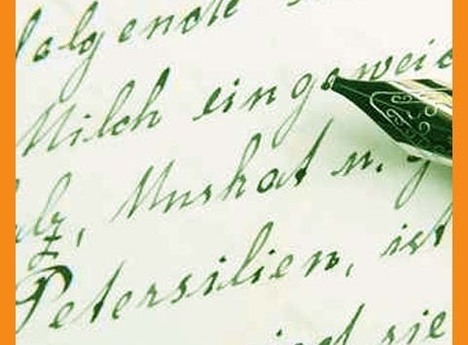 folgende
Milch eingeweic
alz, Muskat u. g
Petersilien, ist
sie